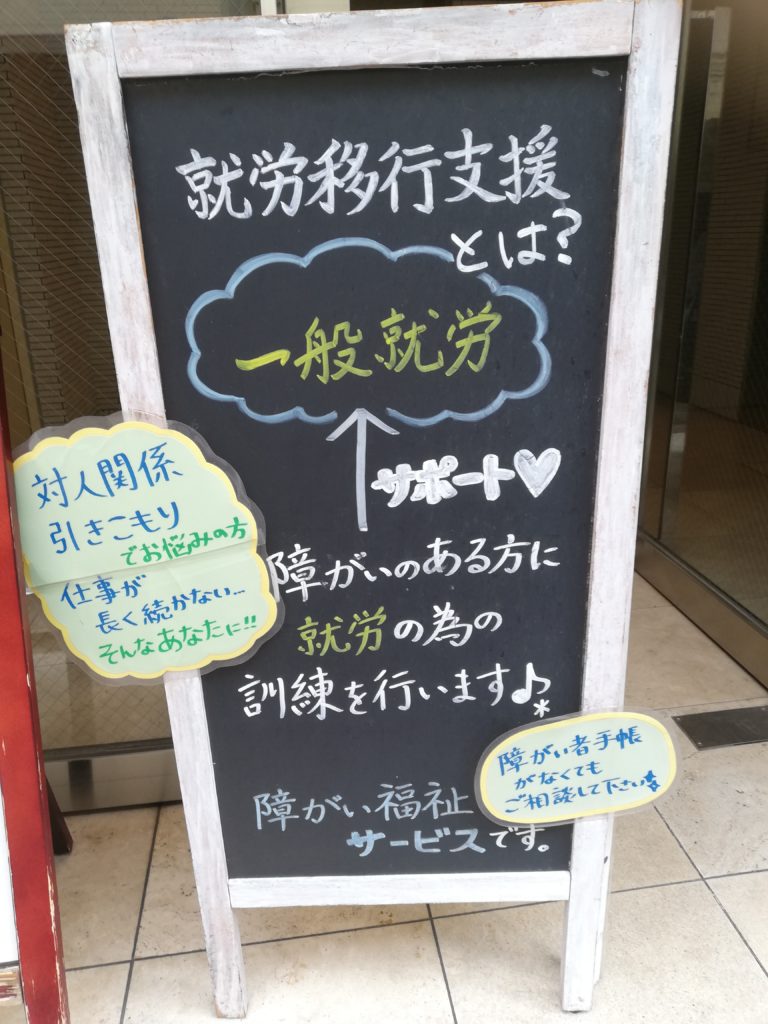 就労移行支援
とは?
一般就労
サポート♡
障がいのある方に
就労の為の
訓練を行います♪*
障がい福祉
サービスです。
対人関係
引きこもり
でお悩みの方
仕事が
長く続かない…
そんなあなたに!!
障がい者手帳
がなくても
ご相談して下さい